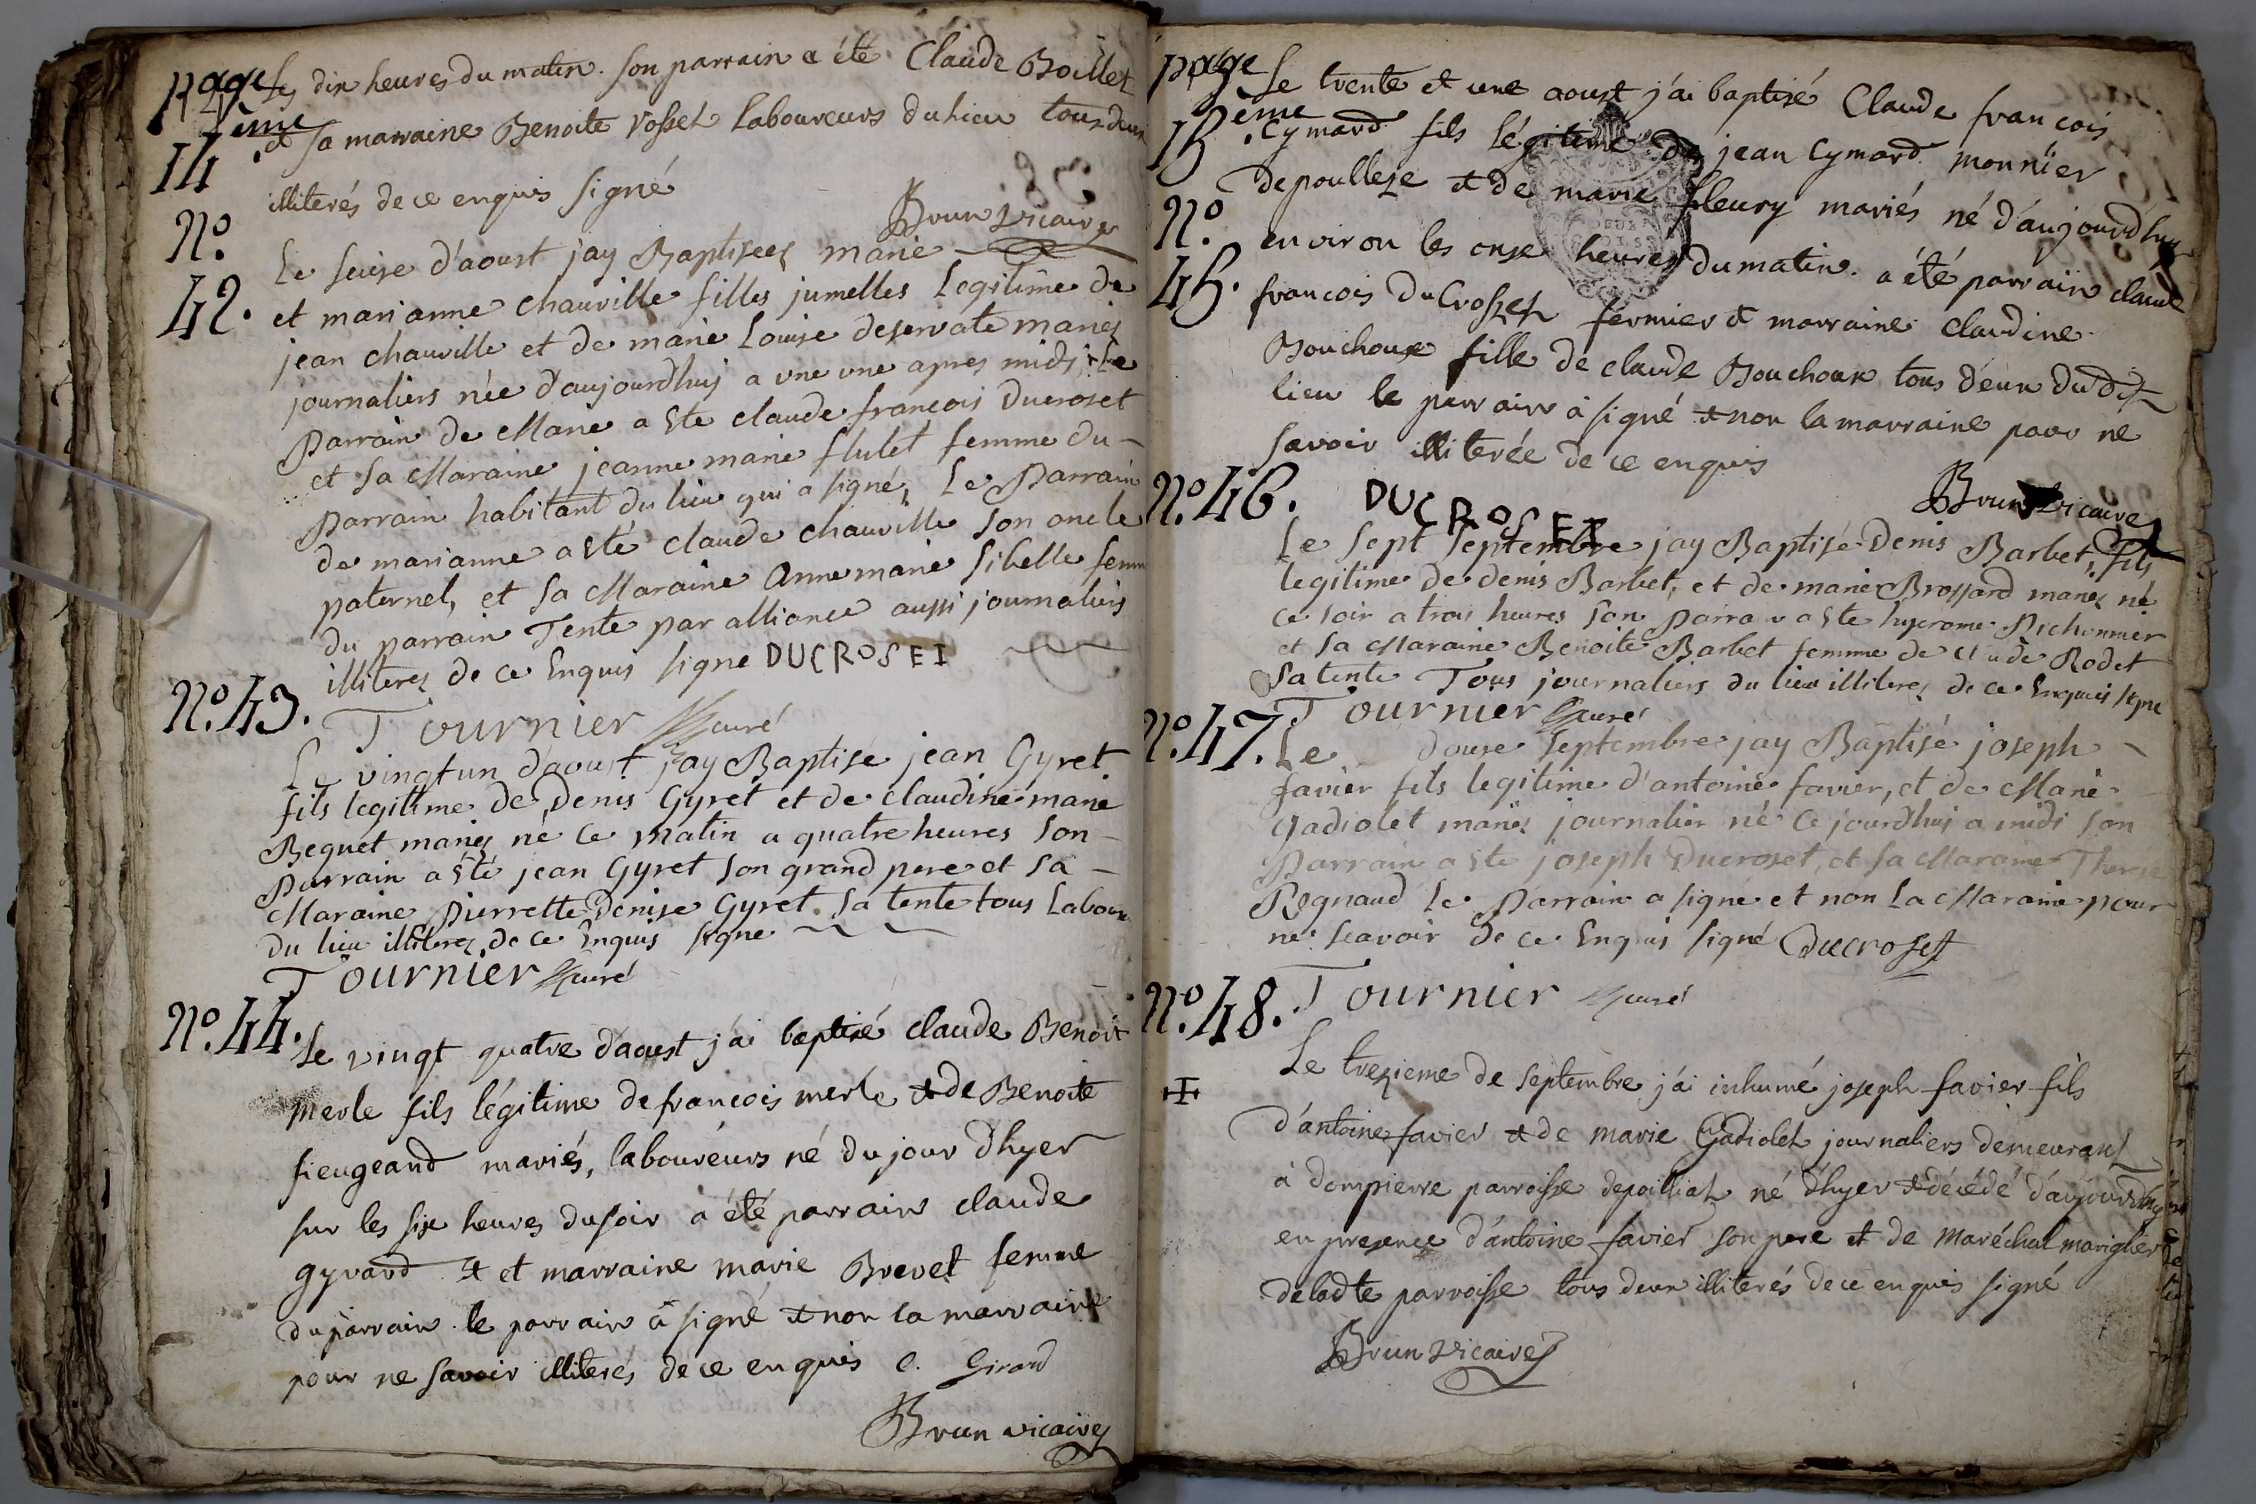 page 14ème.
Les dix heures du matin. son parrain a été Claude Boillet
et sa marraine Benoite Vosset laboureurs du lieu tous deux
illiterés de ce enquis signé
Brun vicaire
No. 42.
Le seise d'aoust jay Baptisees marie
et marianne chauville filles jumelles Legitime de
jean chauville et de marie Louise deservate mariés
journaliers née d'aujourdhuy a une une apres midi Le
Parrain de Marie a Eté claude françois Ducroset
et sa Maraine jeanne marie flulet femme du
parrain habitant du lieu qui a signé, Le Parrain
de marianne a Eté claude chauville son oncle
paternel, et sa Maraine Anne marie sibelle femm
du parrain Tente par alliance aussi journaliers
illiteres de ce Enquis signe DUCROSEI
Tournier curé
No. 43.
Le vingt un d'aoust jay Baptise jean Gyret
fils legitime de Denis Gyret et de claudine marie
Beguet mariés né Ce matin a quatre heures son
Parrain a Eté jean Gyret son grand pere et sa
Maraine Pierrette Denise Gyret sa tente tous Labour
du lieu illiteres de ce Enquis signe
Tournier curé
No. 44.
Le vingt quatre d'aoust j'ai baptisé claude Benoit
merle fils légitime de francois merle et de Benoite
fieugeand mariés, laboureurs né du jour d'hyer
sur les six heures du soir a été parrain claude
gyrard et et marraine marie Brevet femme
du parrain. le parrain a signé et non la marraine
pour ne savoir illiterés de ce enquis C. Girard
Brun vicaire
page 15ème.
Le trente et une aoust j'ai baptisé Claude francois
Cymard fils Légitime de jean Cymard monnier
depoulleze et de marie fleury mariés né d'aujourdhuy
No. 45.
environ les onze heures du matin. a été parrain claude
francois Ducrosset fermier et marraine claudine
Bouchoux fille de claude Bouchoux tous deux dudit
lieu le parrain a signé et non la marraine pour ne
savoir illiterée de ce enquis
Brun vicaire
DUCROSEI
No. 46.
Le sept septembre jay Baptisé Denis Barbet, fils
legitime de denis Barbet, et de marie Brossard mariés né
ce soir a trois heures son Parrain a Eté hyerome Pichonnier
et sa Maraine Benoite Barbet femme de claude Rodet
sa tente Tous journaliers du lieu illiteres de ce Enquis signe
Tournier curé
No. 47.
Le douze septembre jay Baptisé joseph
favier fils legitime d'antoine favier, et de Marie
Gadiolet mariés journalier né Ce jourd'hui a midi son
Parrain a Eté joseph Ducroset, et sa Maraine Therese
Rognaud Le Parrain a signe et non La Maraine pour
ne scavoir de ce Enquis signé Ducroset
Tournier curé
No. 48.
Le trezieme de septembre j'ai inhumé joseph favier fils
d'antoine favier et de marie Gadiolet journaliers demeurant
à dompierre parroisse depoilliat né d'hyer et décédé d'aujourdhuy
en presence d'antoine favier son pere et de Maréchal marglier
de ladte parroisse tous deux illiterés de ce enquis signé
Brun vicaire